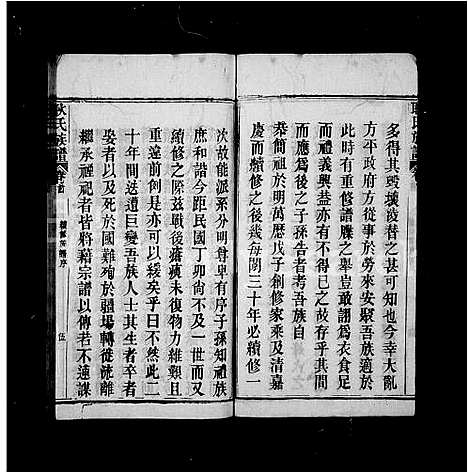 多得其毀壞凌替之甚可知也今幸大亂
方平政府方從事於勞來安聚吾族適於
此時有重修譜牒之舉豈敢謂爲衣食足
而禮義興蓋亦有不得已之故存乎其間
而應爲後之子孫告者考吾族自
恭簡祖於明萬歷戊子創修家乘及清嘉
慶而續修之後幾每閱三十年必續修一
次故能派系分明尊卑有序子孫知禮族
庶和諧今距民國丁卯尚不及一世而又
續修之際茲戰後瘡痍未復物力維艱且
重違前例是亦可以緩矣乎曰不然此二
十年間迭遭巨變吾族人士其生者卒者
娶者以及死於國難殉於疆場轉徙流離
繼承祧祀者皆將藉宗譜以傳若不速謀
耿氏族譜
續修族譜序
伍